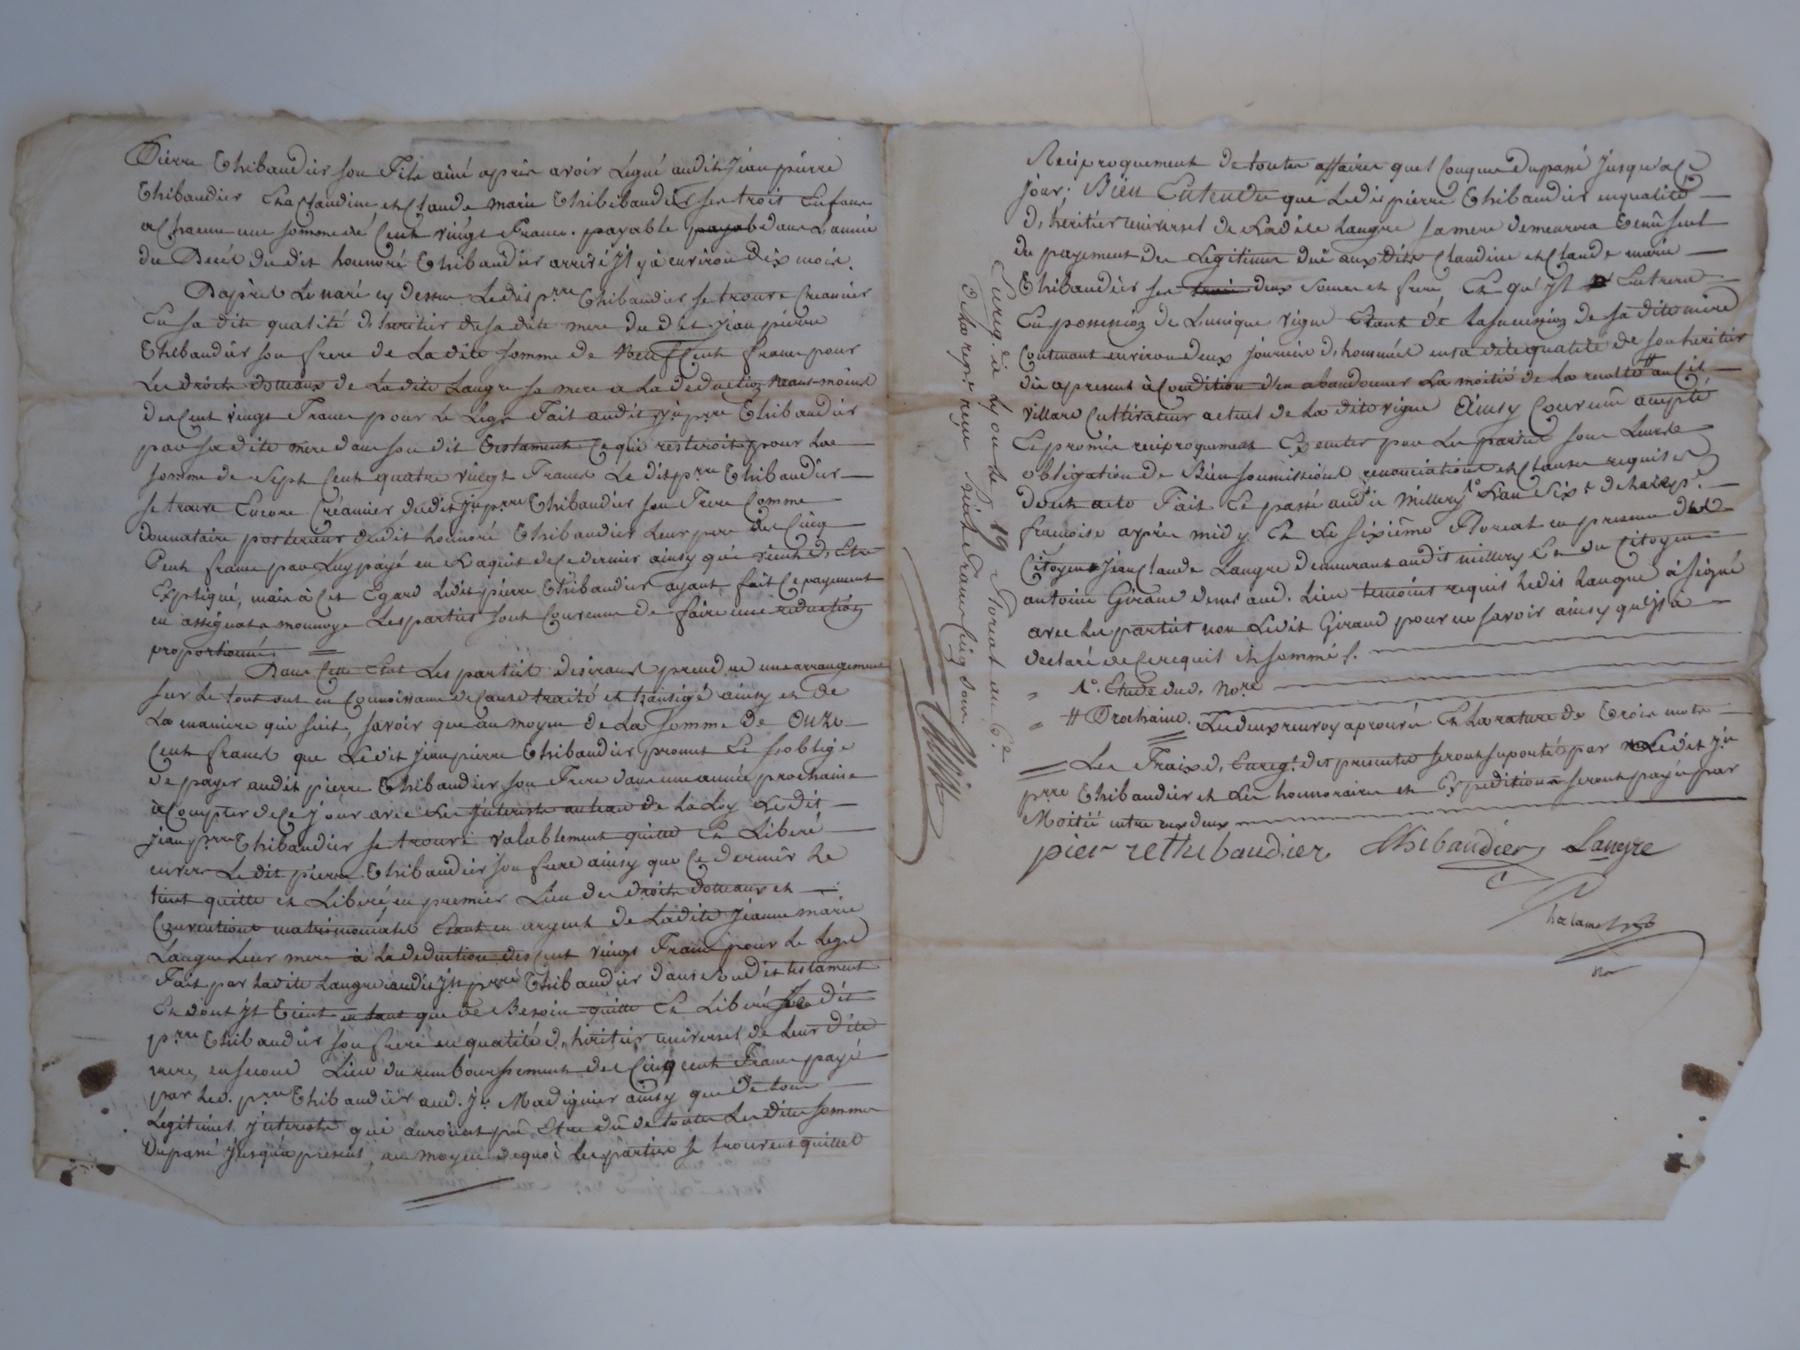 Pierre Thibaudier son Fils ainé apres avoir Légué audit Jean pierre
Thibaudier Claudine et Claude marie Thibibaudier ses trois Enfans
a Chacun une somme de Cent vingt Francs payable payab dans L'année
du Decès du dit honnoré Thibaudier arrivé Jl y a environ Dix mois.
D'apres Le naré cy dessus Ledit p.rre Thibaudier se trouve Creancier
En sa dite qualité d'heritier de sa dite mere du dit Jean pierre
Thibaudier son frere de La dite somme de Neuf Cent francs pour
Les droits dotteaux de Ladite Langre sa mere a La deduction neans-moins
des Cent vingt Francs pour Le Legs Fait audit Jn p.rre Thibaudier
par sa dite mere dans son dit testament Ce qui resteroit pour La
somme de Sept Cent quatre vingt Francs Le dit p.rre Thibaudier
se trouve Encore Créancier dudit Jn p.rre Thibaudier son Frere Comme
donnataire posterieur dudit honnoré Thibaudier Leur pere des Cinq
Cent francs par Luy payé en L'aquit de Ce dernier ainsy qu'il vient d'Etre
Expliqué, mais à Cet Egard Ledit pierre Thibaudier ayant fait Ce payement
en assignats monnoye Les parties sont Convenus de faire une reduction
proportionné.
Dans Cette Etat Les parties desirant prendre une arrangement
sur Le tout ont en Connoissance de Cause traité et transigé ainsy et de
La maniere qui suit, savoir que au moyen de La somme de Onze
Cent francs que Ledit Jean pierre Thibaudier promet Et s'oblige
de payer audit pierre Thibaudier son Frere dans une année prochaine
à Compter de Ce Jour avec Les Jnterists au taux de La Loy Ledit
Jean p.rre Thibaudier se trouve valablement quitte Et Liberé
envers Ledit pierre Thibaudier son frere ainsy que Ce dernier Le
tient quitte et Liberé, en premier Lieu des droits dotteaux et
Conventions matrimoniales Etant en argent de Ladite Jeanne marie
Langre Leur mere à La deduction des Cent vingt Francs pour Le Legs
Fait par Ladite Langre audit Jn p.rre Thibaudier dans son dit testament
Et dont Jl tient en tant que de Besoin quitte Et Liberé Le dit
p.rre Thibaudier son frere en qualité d'heritier universel de Leur dite
mere, en second Lieu du remboursement des Cinq cent Francs payé
par Led. p.rre Thibaudier aud. Jn Madignier ainsy que de tous
Legitimes Jnterists qui auroient pû Etre dû de toutes Les dites sommes
Dupassé Jusqu'a présent, au moyen de quoi Les parties se trouvent quittes
Reciproquement de toutes affaires quel Conques Dupassé Jusqu'a Ce
Jour; Bien Entendu que Ledit pierre Thibaudier en qualité
d'heritier universel de Ladite Langre sa mere demeurera tenû seul
du payement des Legitimes dûe aux dits Claudine et Claude marie
Thibaudier ses deux soeur et frere, Et qu'Jl Entrera
En possession de L'unique vigne Etant de La succession de sa dite mere
Contenant environ deux journées d'hommes en sa dite qualité de son heritier
dès apresent à Condition d'en abandonner La moitié de La recolte # au Cit.
villard Cultivateur actuel de La dite vigne Ainsy Convenû accepté
Et promis reciproquement Executer par Les parties sous Leurs
obligations de Biens soumissions renonciations et Clauses requises
dont acte Fait Et passé audit Millery 1.o L'an Six.e de La rep.e
françoise apres midy Et Le sixieme Floreal en presence des
Citoyens Jean Claude Langre demeurant audit millery Et du Citoyen
antoine Giraud demt aud. Lieu temoins requis Ledit Langre à signé
avec Les parties non Ledit Giraud pour ne savoir ainsy qu'Jl à
declaré de Ce requit et sommé /.
" 1.o Etude dud. No.re
" # Prochaine. Les deux renvoy aprouvé Et La rature de trois mots
Les Fraix d'Enreg.t des presentes seront suporté par Ledit Jn
p.rre Thibaudier et Les honnoraires et Expeditions seront payé par
Moitié entre eux deux
pierre thibaudier Thibaudier Langre
Enreg.é à Lyon le 19 Floreal an 6.e
de la rep. reçu huit Francs Cinq sous